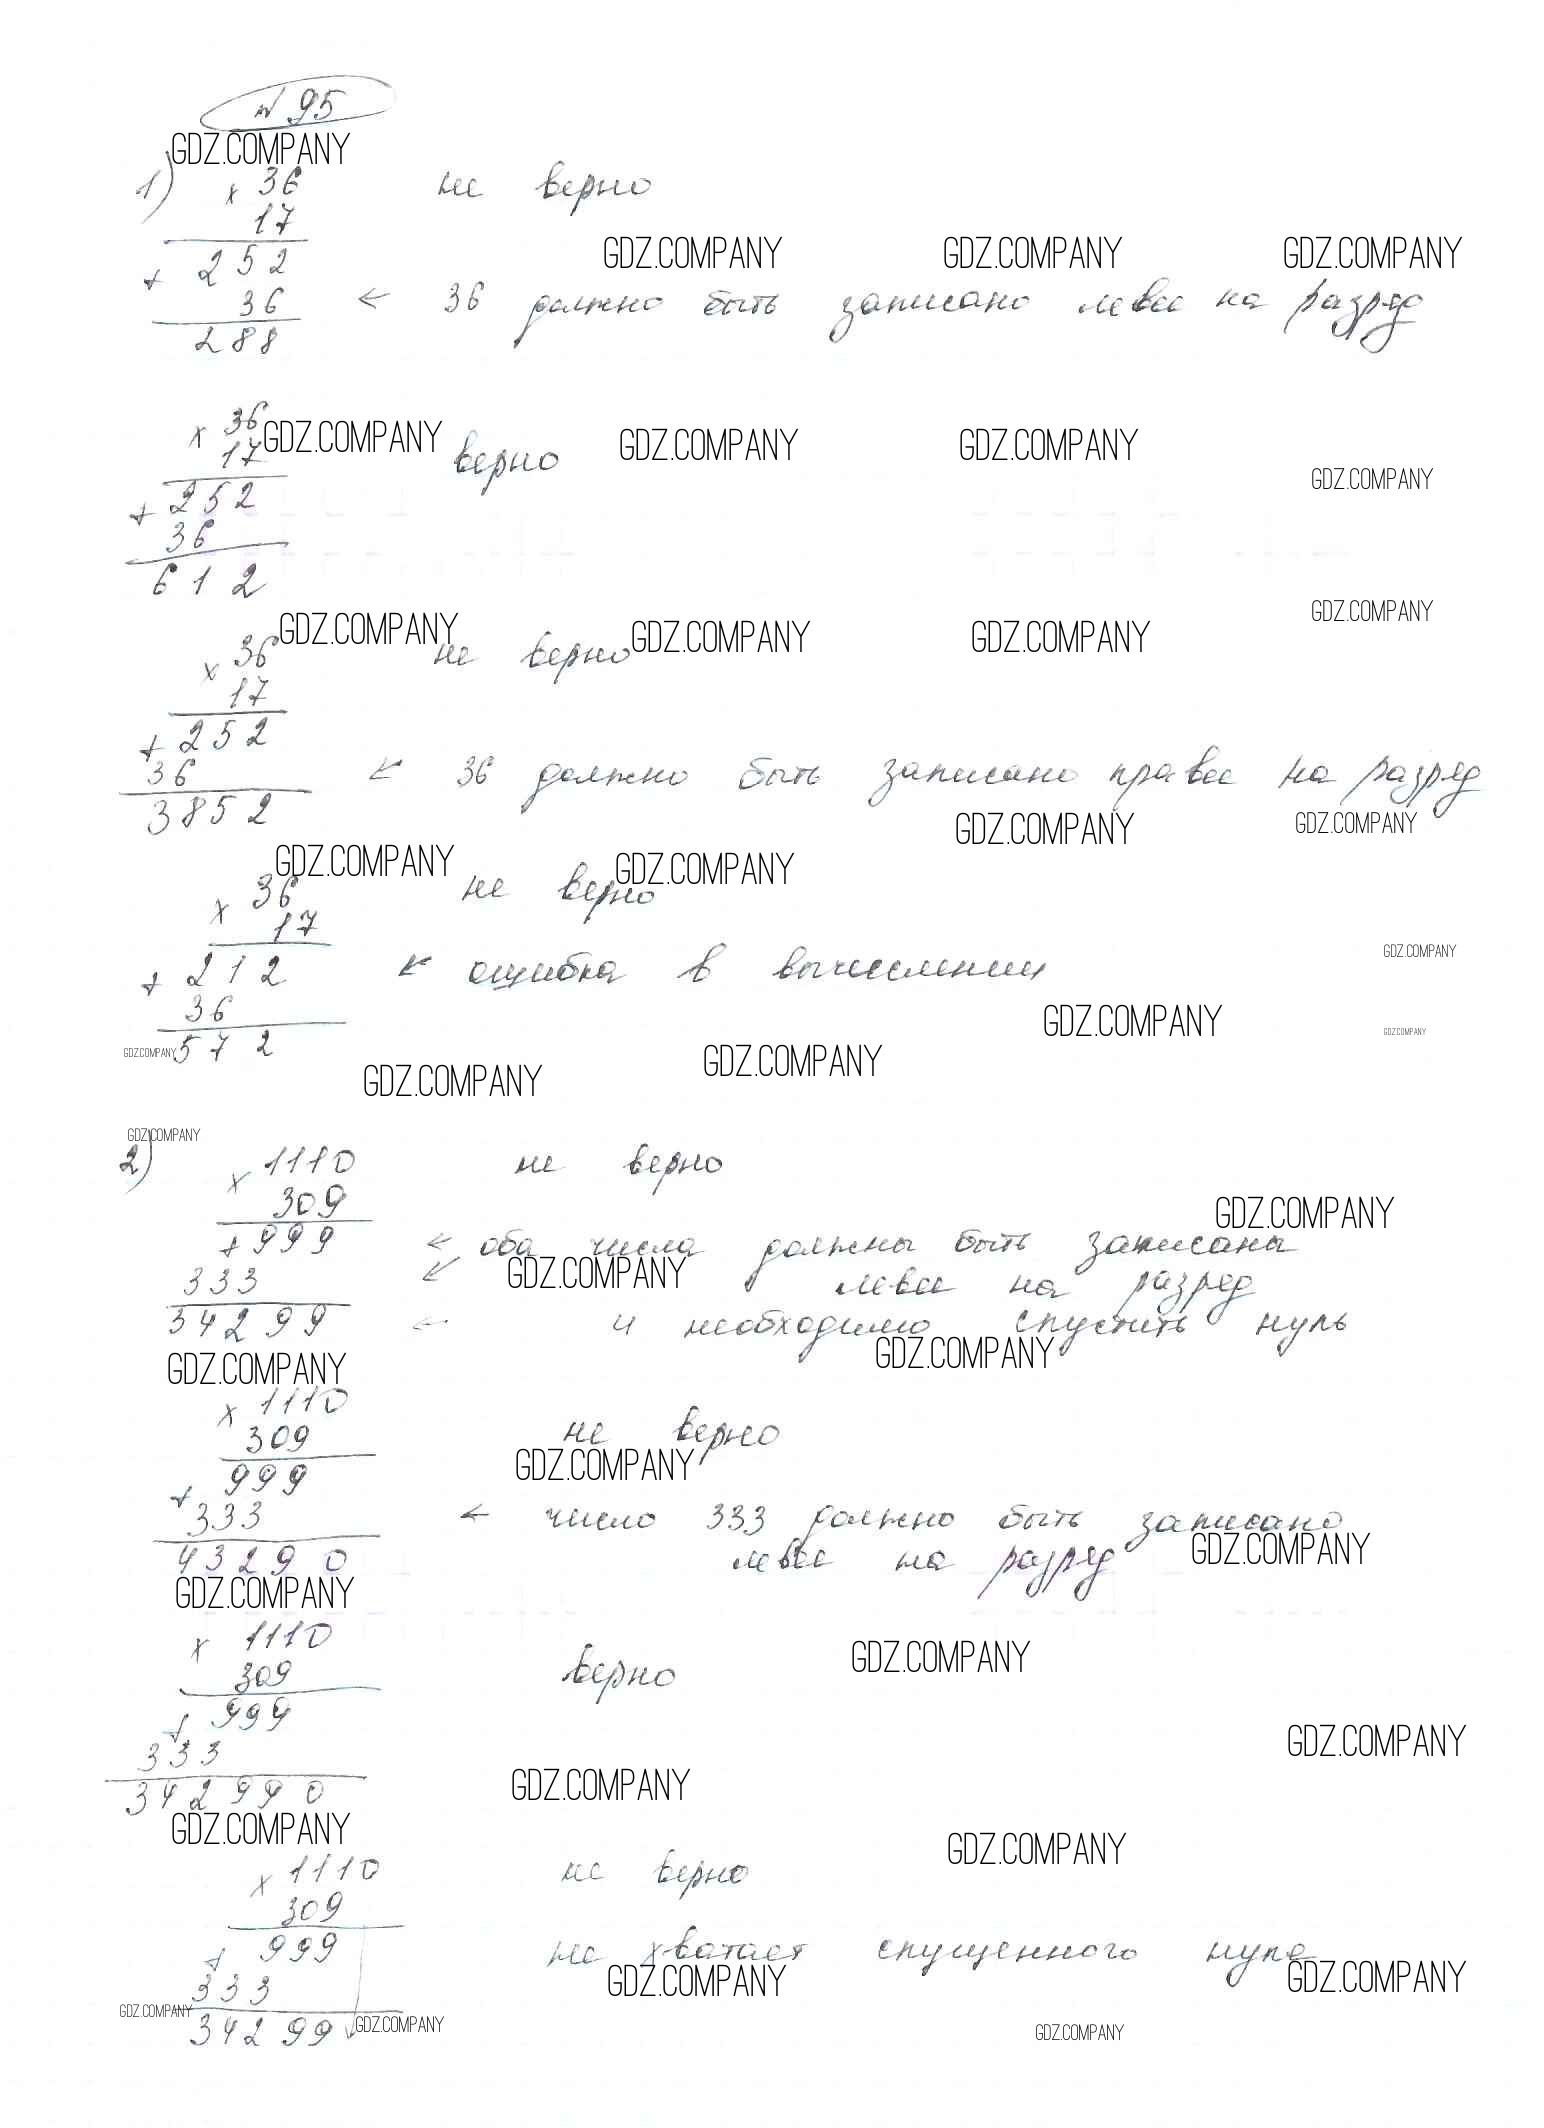 № 95
GDZ.COMPANY
1) × 36 не верно
17
GDZ.COMPANY GDZ.COMPANY GDZ.COMPANY
+ 252
36 ← 36 должно быть записано левее на разряд
288
× 36
GDZ.COMPANY GDZ.COMPANY GDZ.COMPANY
17 верно
GDZ.COMPANY
+ 252
36
612
GDZ.COMPANY
GDZ.COMPANY GDZ.COMPANY GDZ.COMPANY
× 36 не верно
17
+ 252
36 ← 36 должно быть записано правее на разряд
3852
GDZ.COMPANY GDZ.COMPANY
GDZ.COMPANY GDZ.COMPANY
× 36 не верно
17
GDZ.COMPANY
+ 212 ← ошибка в вычислении
36
GDZ.COMPANY GDZ.COMPANY
572
GDZ.COMPANY GDZ.COMPANY GDZ.COMPANY
GDZ.COMPANY
2) × 1110 не верно
309
GDZ.COMPANY
+ 999 ← оба числа должны быть записаны
333 ← левее на разряд
GDZ.COMPANY
34299 ← и необходимо спустить нуль
GDZ.COMPANY GDZ.COMPANY
× 1110 не верно
309
GDZ.COMPANY
999
+ 333 ← число 333 должно быть записано
43290 левее на разряд
GDZ.COMPANY
GDZ.COMPANY
× 1110
GDZ.COMPANY
309 верно
+ 999
GDZ.COMPANY
333
342990
GDZ.COMPANY
GDZ.COMPANY GDZ.COMPANY
× 1110 не верно
309
+ 999 не хватает спущенного нуля
GDZ.COMPANY GDZ.COMPANY
333
GDZ.COMPANY GDZ.COMPANY GDZ.COMPANY
34299